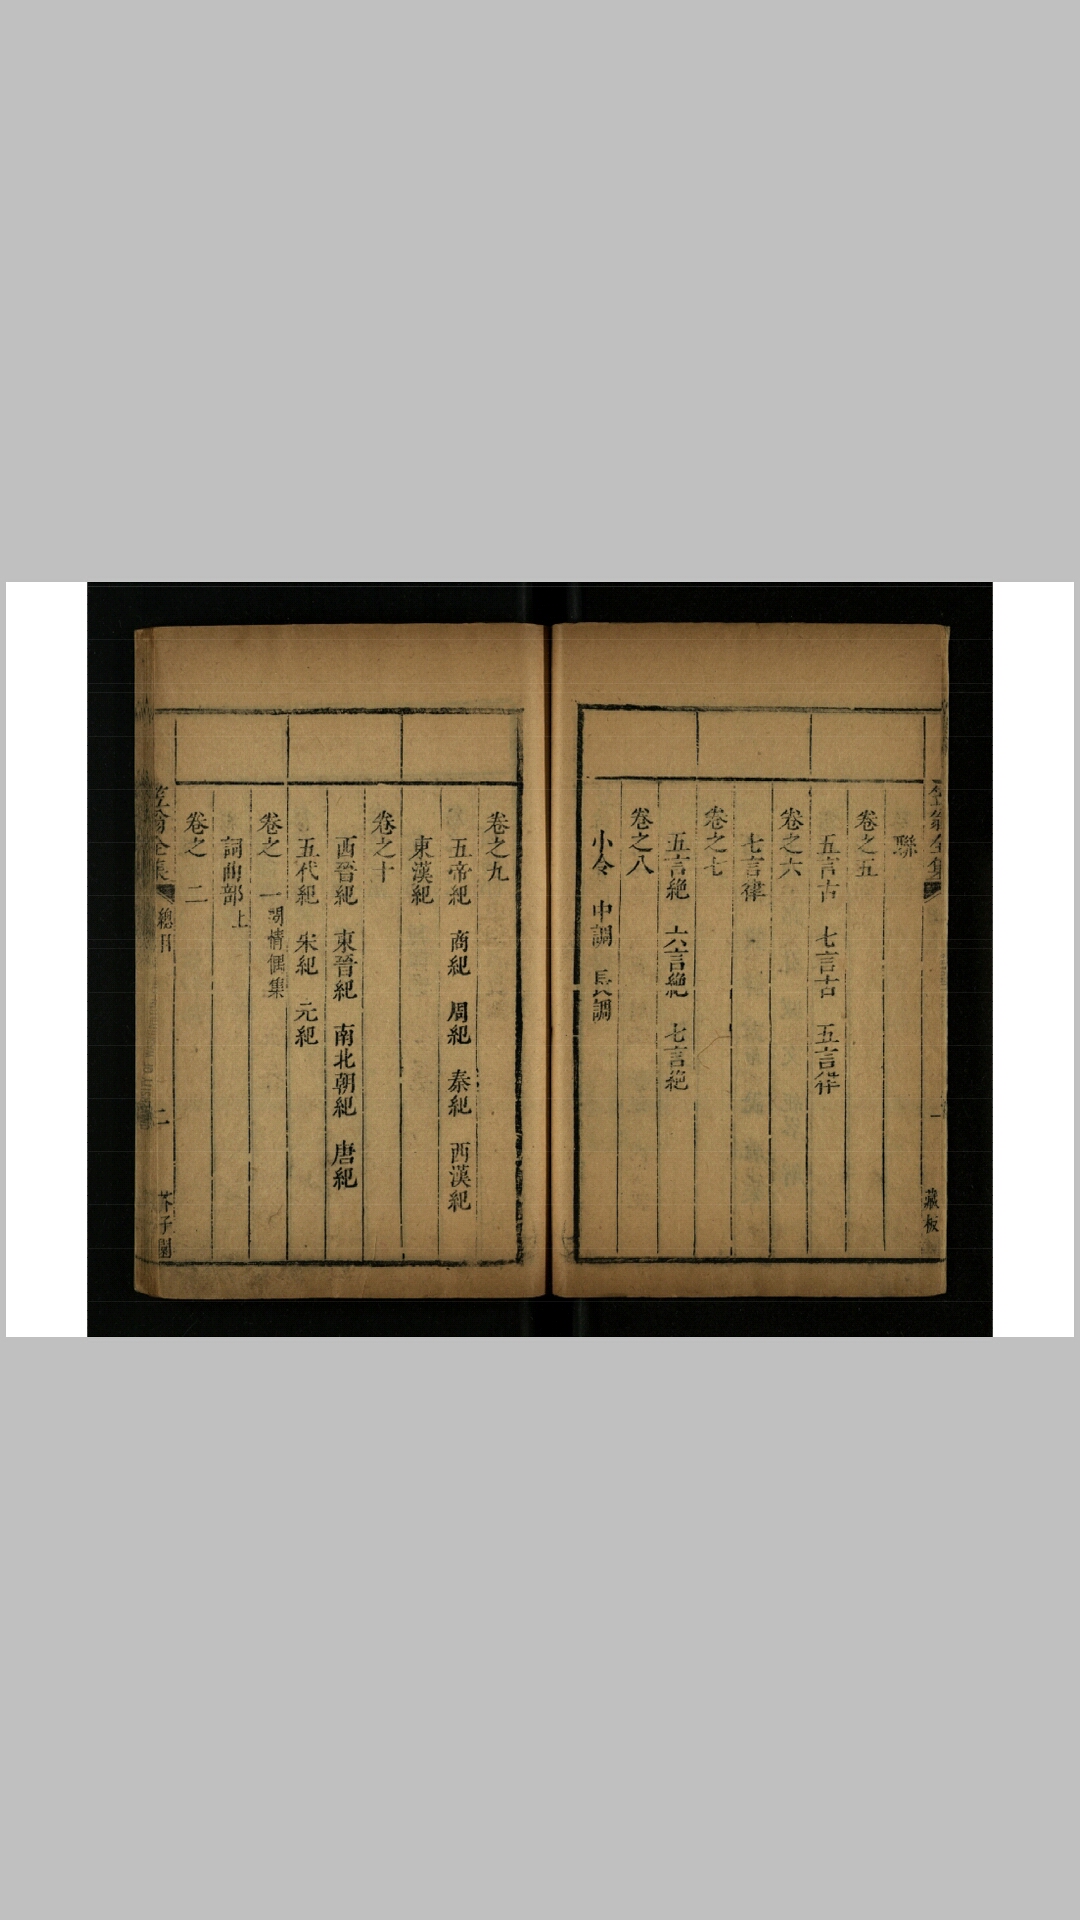 笠翁全集
一
藏板
聯
卷之五
五言古 七言古 五言律
卷之六
七言律
卷之七
五言絶 六言絶 七言絶
卷之八
小令 中調 長調
卷之九
五帝紀 商紀 周紀 秦紀 西漢紀
東漢紀
卷之十
西晉紀 東晉紀 南北朝紀 唐紀
五代紀 宋紀 元紀
卷之一 閒情偶集
詞曲部上
卷之二
笠翁全集 總目 二 芥子園